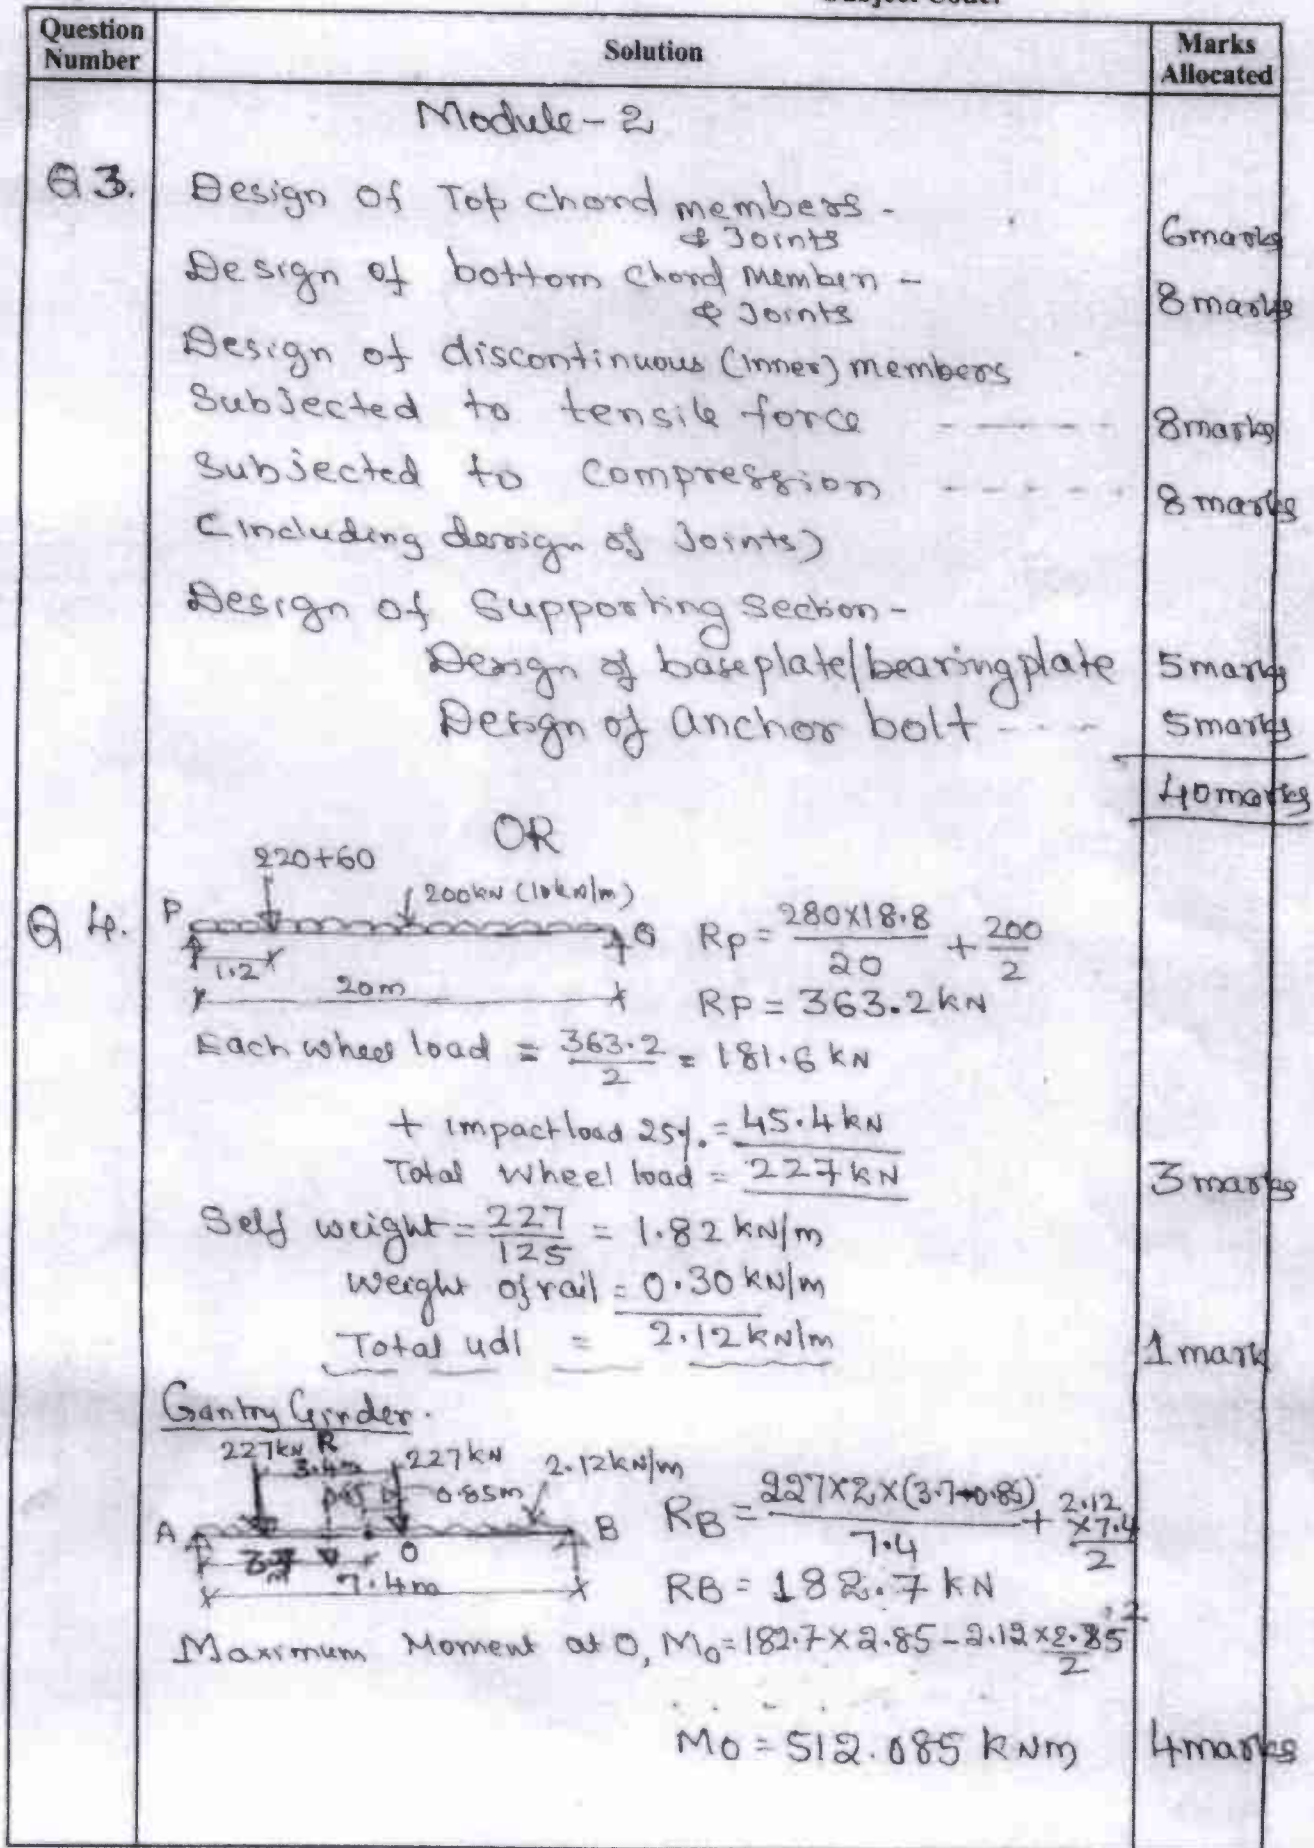 Question Number
Solution
Marks Allocated
Module - 2
Q 3.
Design of Top chord members -
& Joints
6 marks
Design of bottom chord Member -
& Joints
8 marks
Design of discontinuous (inner) members
Subjected to tensile force - - - - -
8 marks
Subjected to compression - - - - -
8 marks
(including design of Joints)
Design of Supporting Section -
Design of baseplate/bearing plate
5 marks
Design of anchor bolt - - - -
5 marks
40 marks
OR
Q 4.
220+60
200kN (10kN/m)
P
Q
1.2
20m
RP = 280×18.8/20 + 200/2
RP = 363.2 kN
Each wheel load = 363.2/2 = 181.6 kN
+ impact load 25%. = 45.4 kN
Total Wheel load = 227 kN
3 marks
Self weight = 227/125 = 1.82 kN/m
Weight of rail = 0.30 kN/m
Total udl = 2.12 kN/m
1 mark
Gantry Girder.
227kN R
227kN
2.12kN/m
3.4m
0.85m
A
B
O
7.4m
RB = 227×2×(3.7+0.85)/7.4 + 2.12×7.4/2
RB = 182.7 kN
Maximum Moment at O, Mo = 182.7 × 2.85 - 2.12 × 2.85²/2
Mo = 512.085 kNm
4 marks